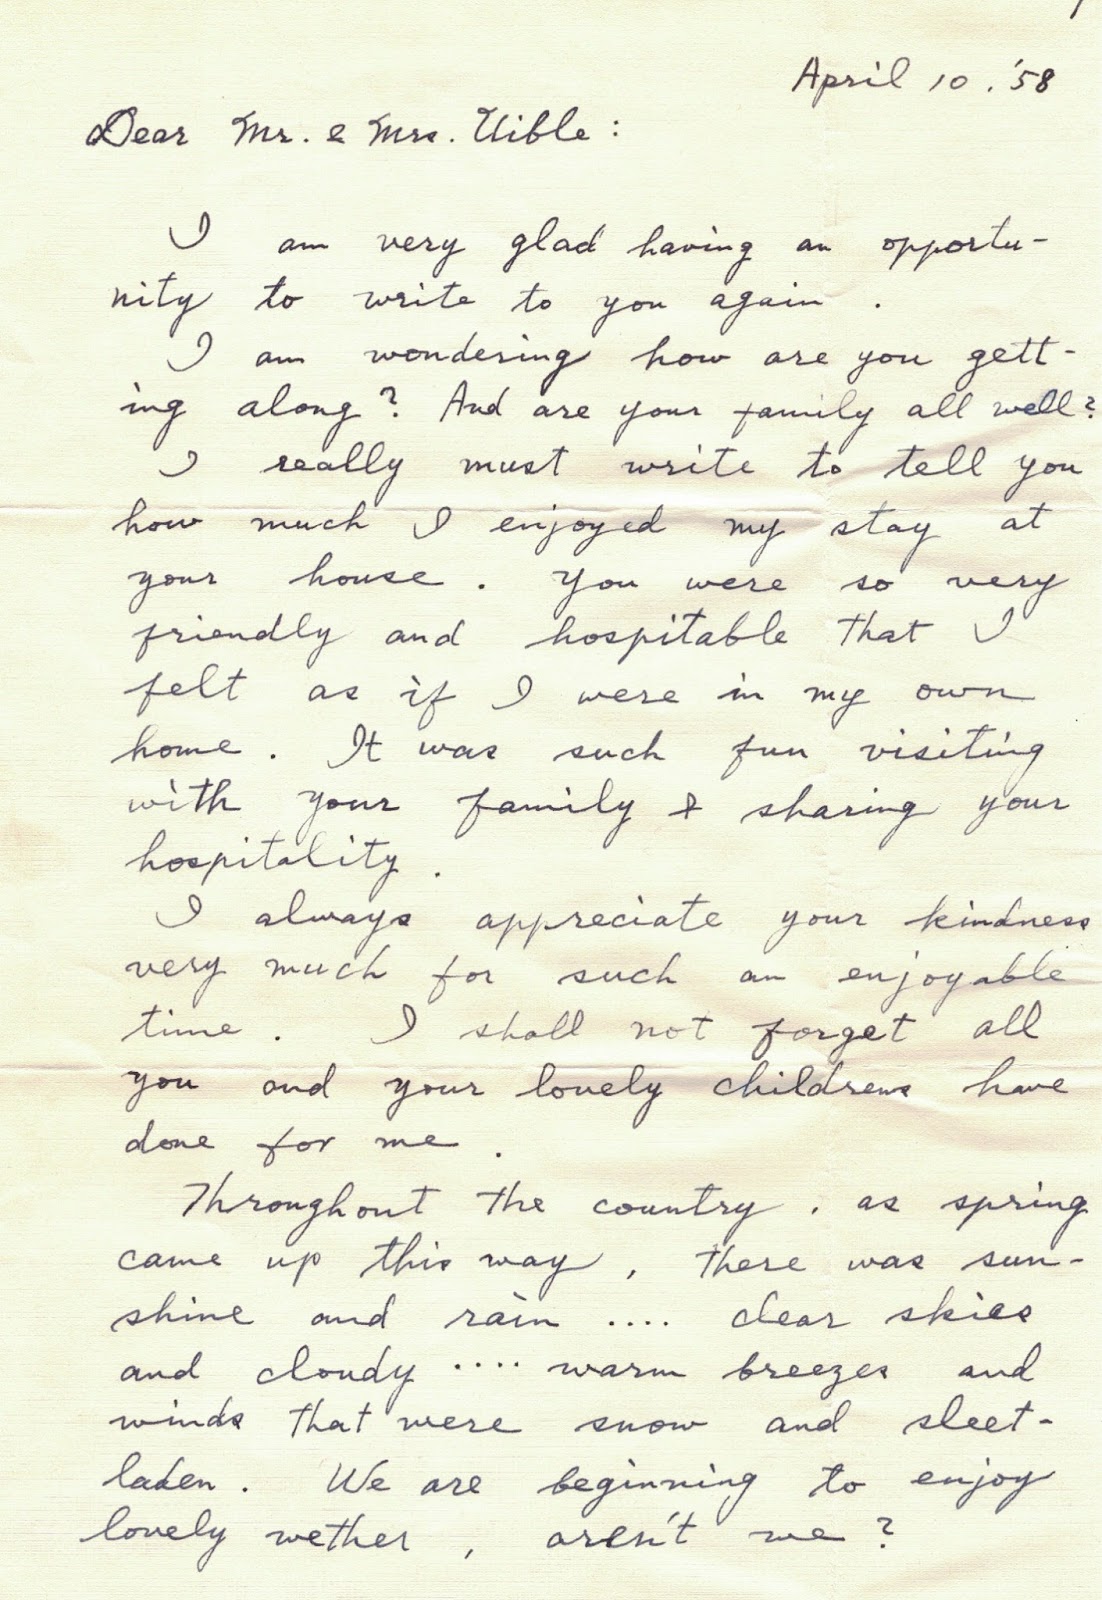 April 10, '58
Dear Mr. & Mrs. Uible:
I am very glad having an opportu-
nity to write to you again.
I am wondering how are you gett-
ing along? And are your family all well?
I really must write to tell you
how much I enjoyed my stay at
your house. You were so very
friendly and hospitable that I
felt as if I were in my own
home. It was such fun visiting
with your family & sharing your
hospitality.
I always appreciate your kindness
very much for such an enjoyable
time. I shall not forget all
you and your lovely childrens have
done for me.
Throughout the country, as spring
came up this way, there was sun-
shine and rain .... clear skies
and cloudy .... warm breezes and
winds that were snow and sleet-
laden. We are beginning to enjoy
lovely wether, aren't we?